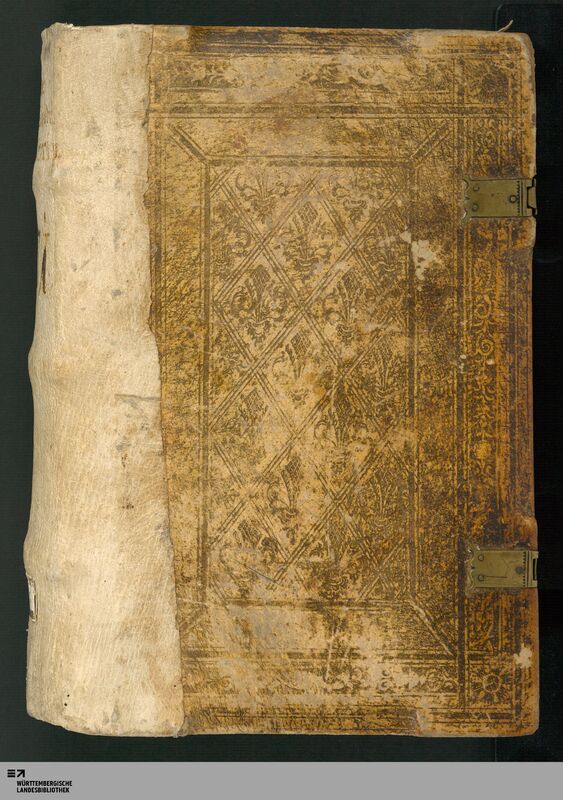 WÜRTTEMBERGISCHE
LANDESBIBLIOTHEK